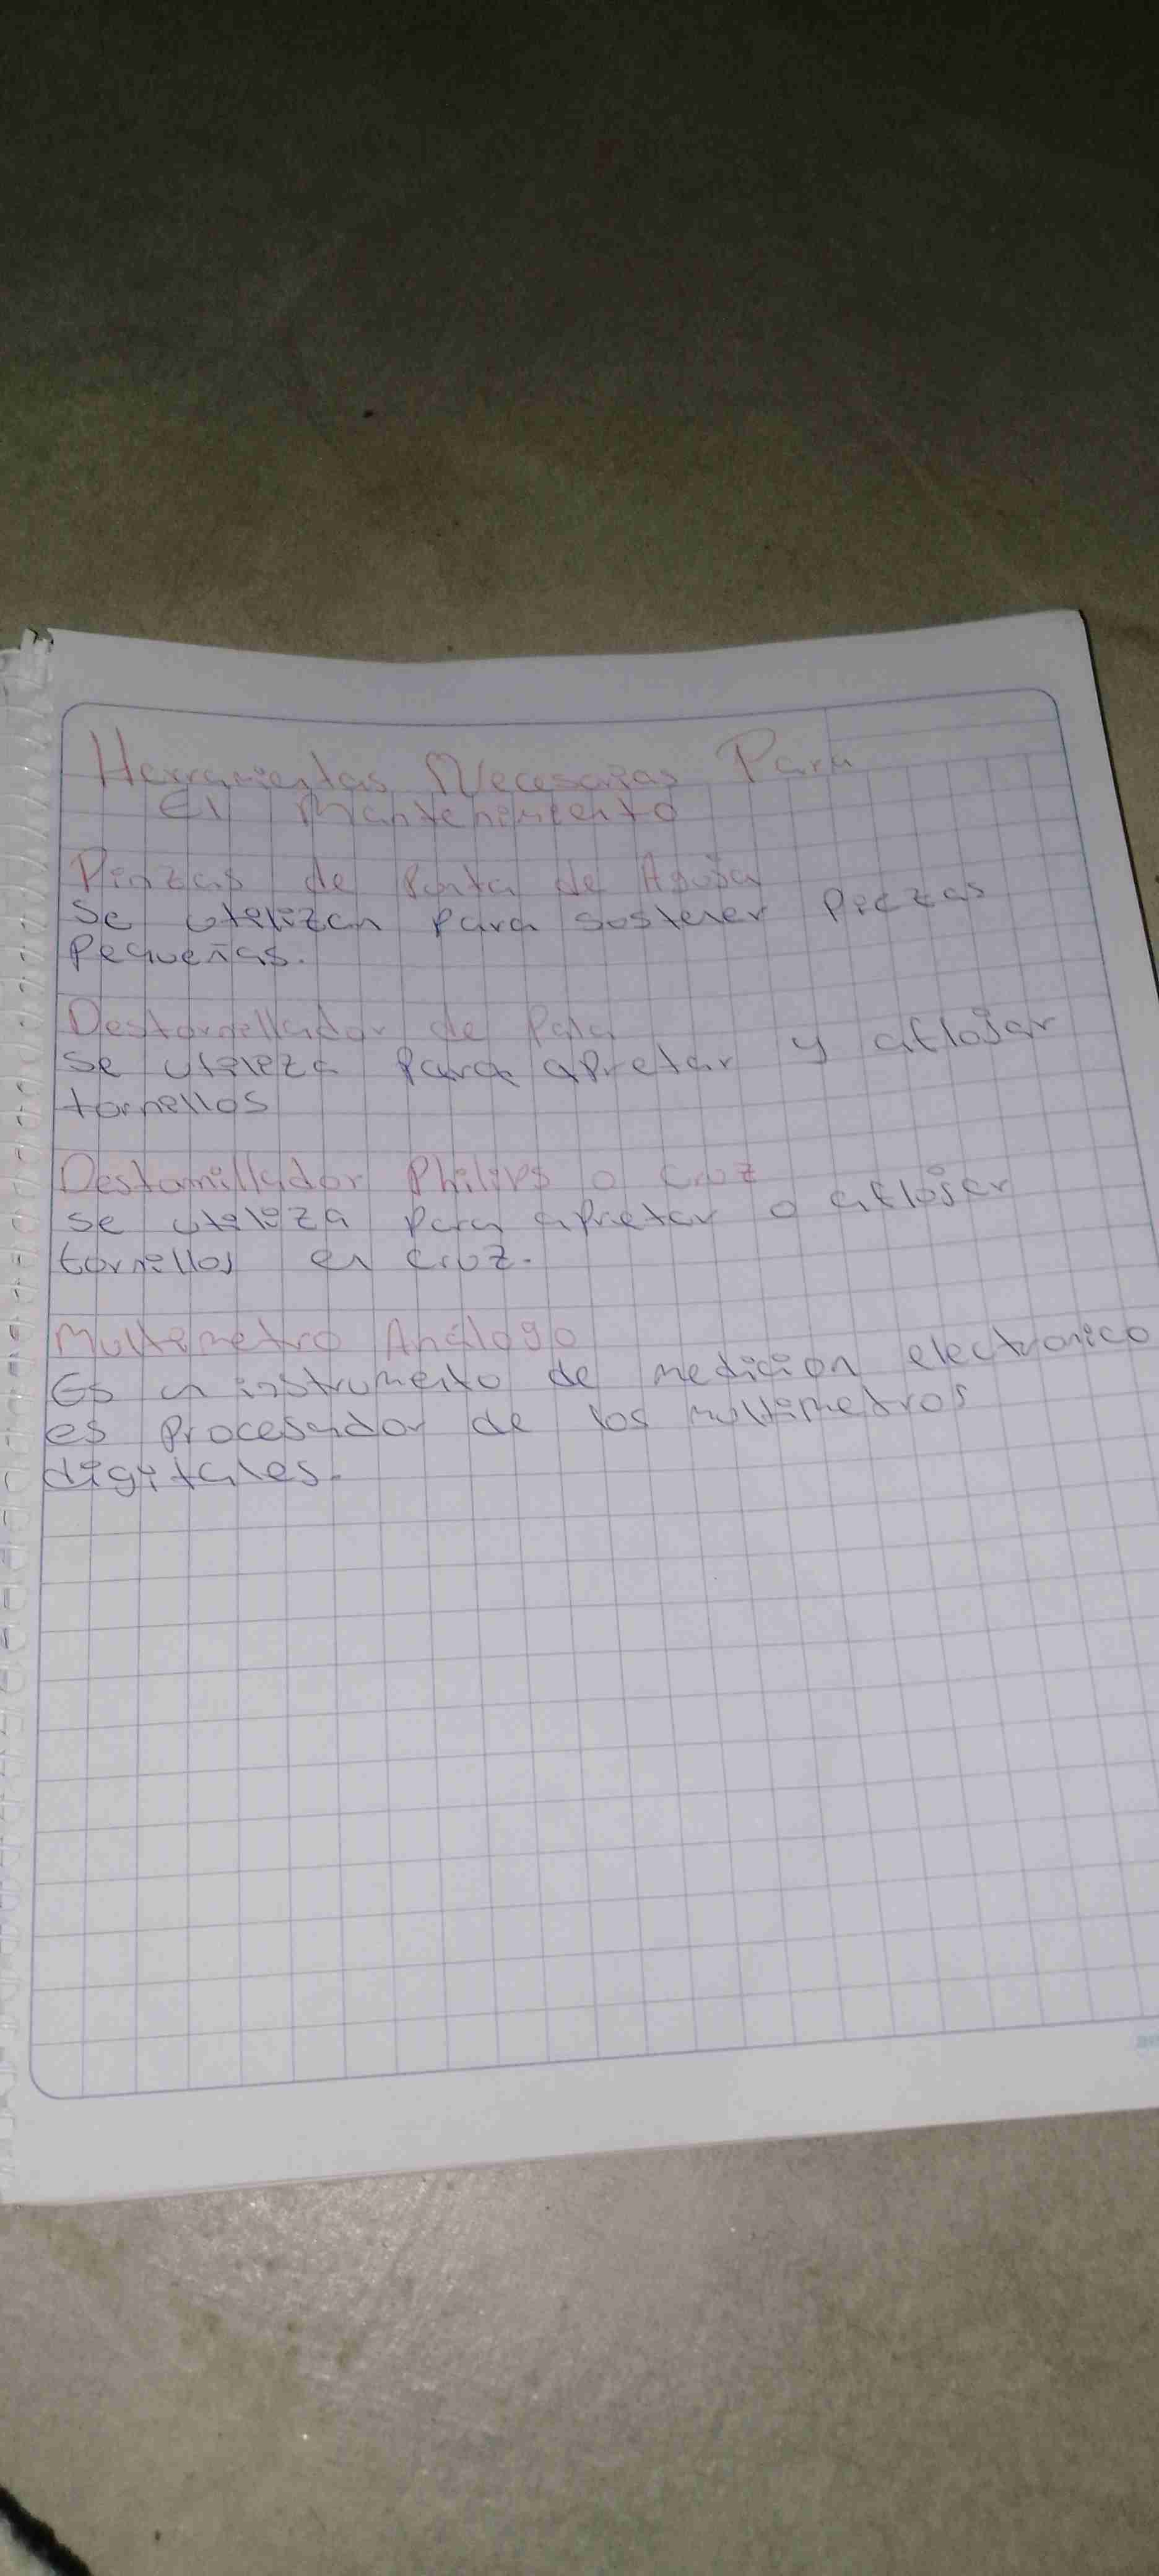 Herramientas Necesarias Para
El Mantenimiento
Pinzas de Punta de Aguja
Se utilizan para sostener piezas
Pequeñas.
Destornillador de Pala
se utiliza para apretar y aflojar
tornillos
Destornillador Philips o cruz
se utiliza para apretar o aflojar
tornillos en cruz.
Multimetro Análogo
Es un instrumento de medición electronico
es Procesador de los multimetros
digitales.